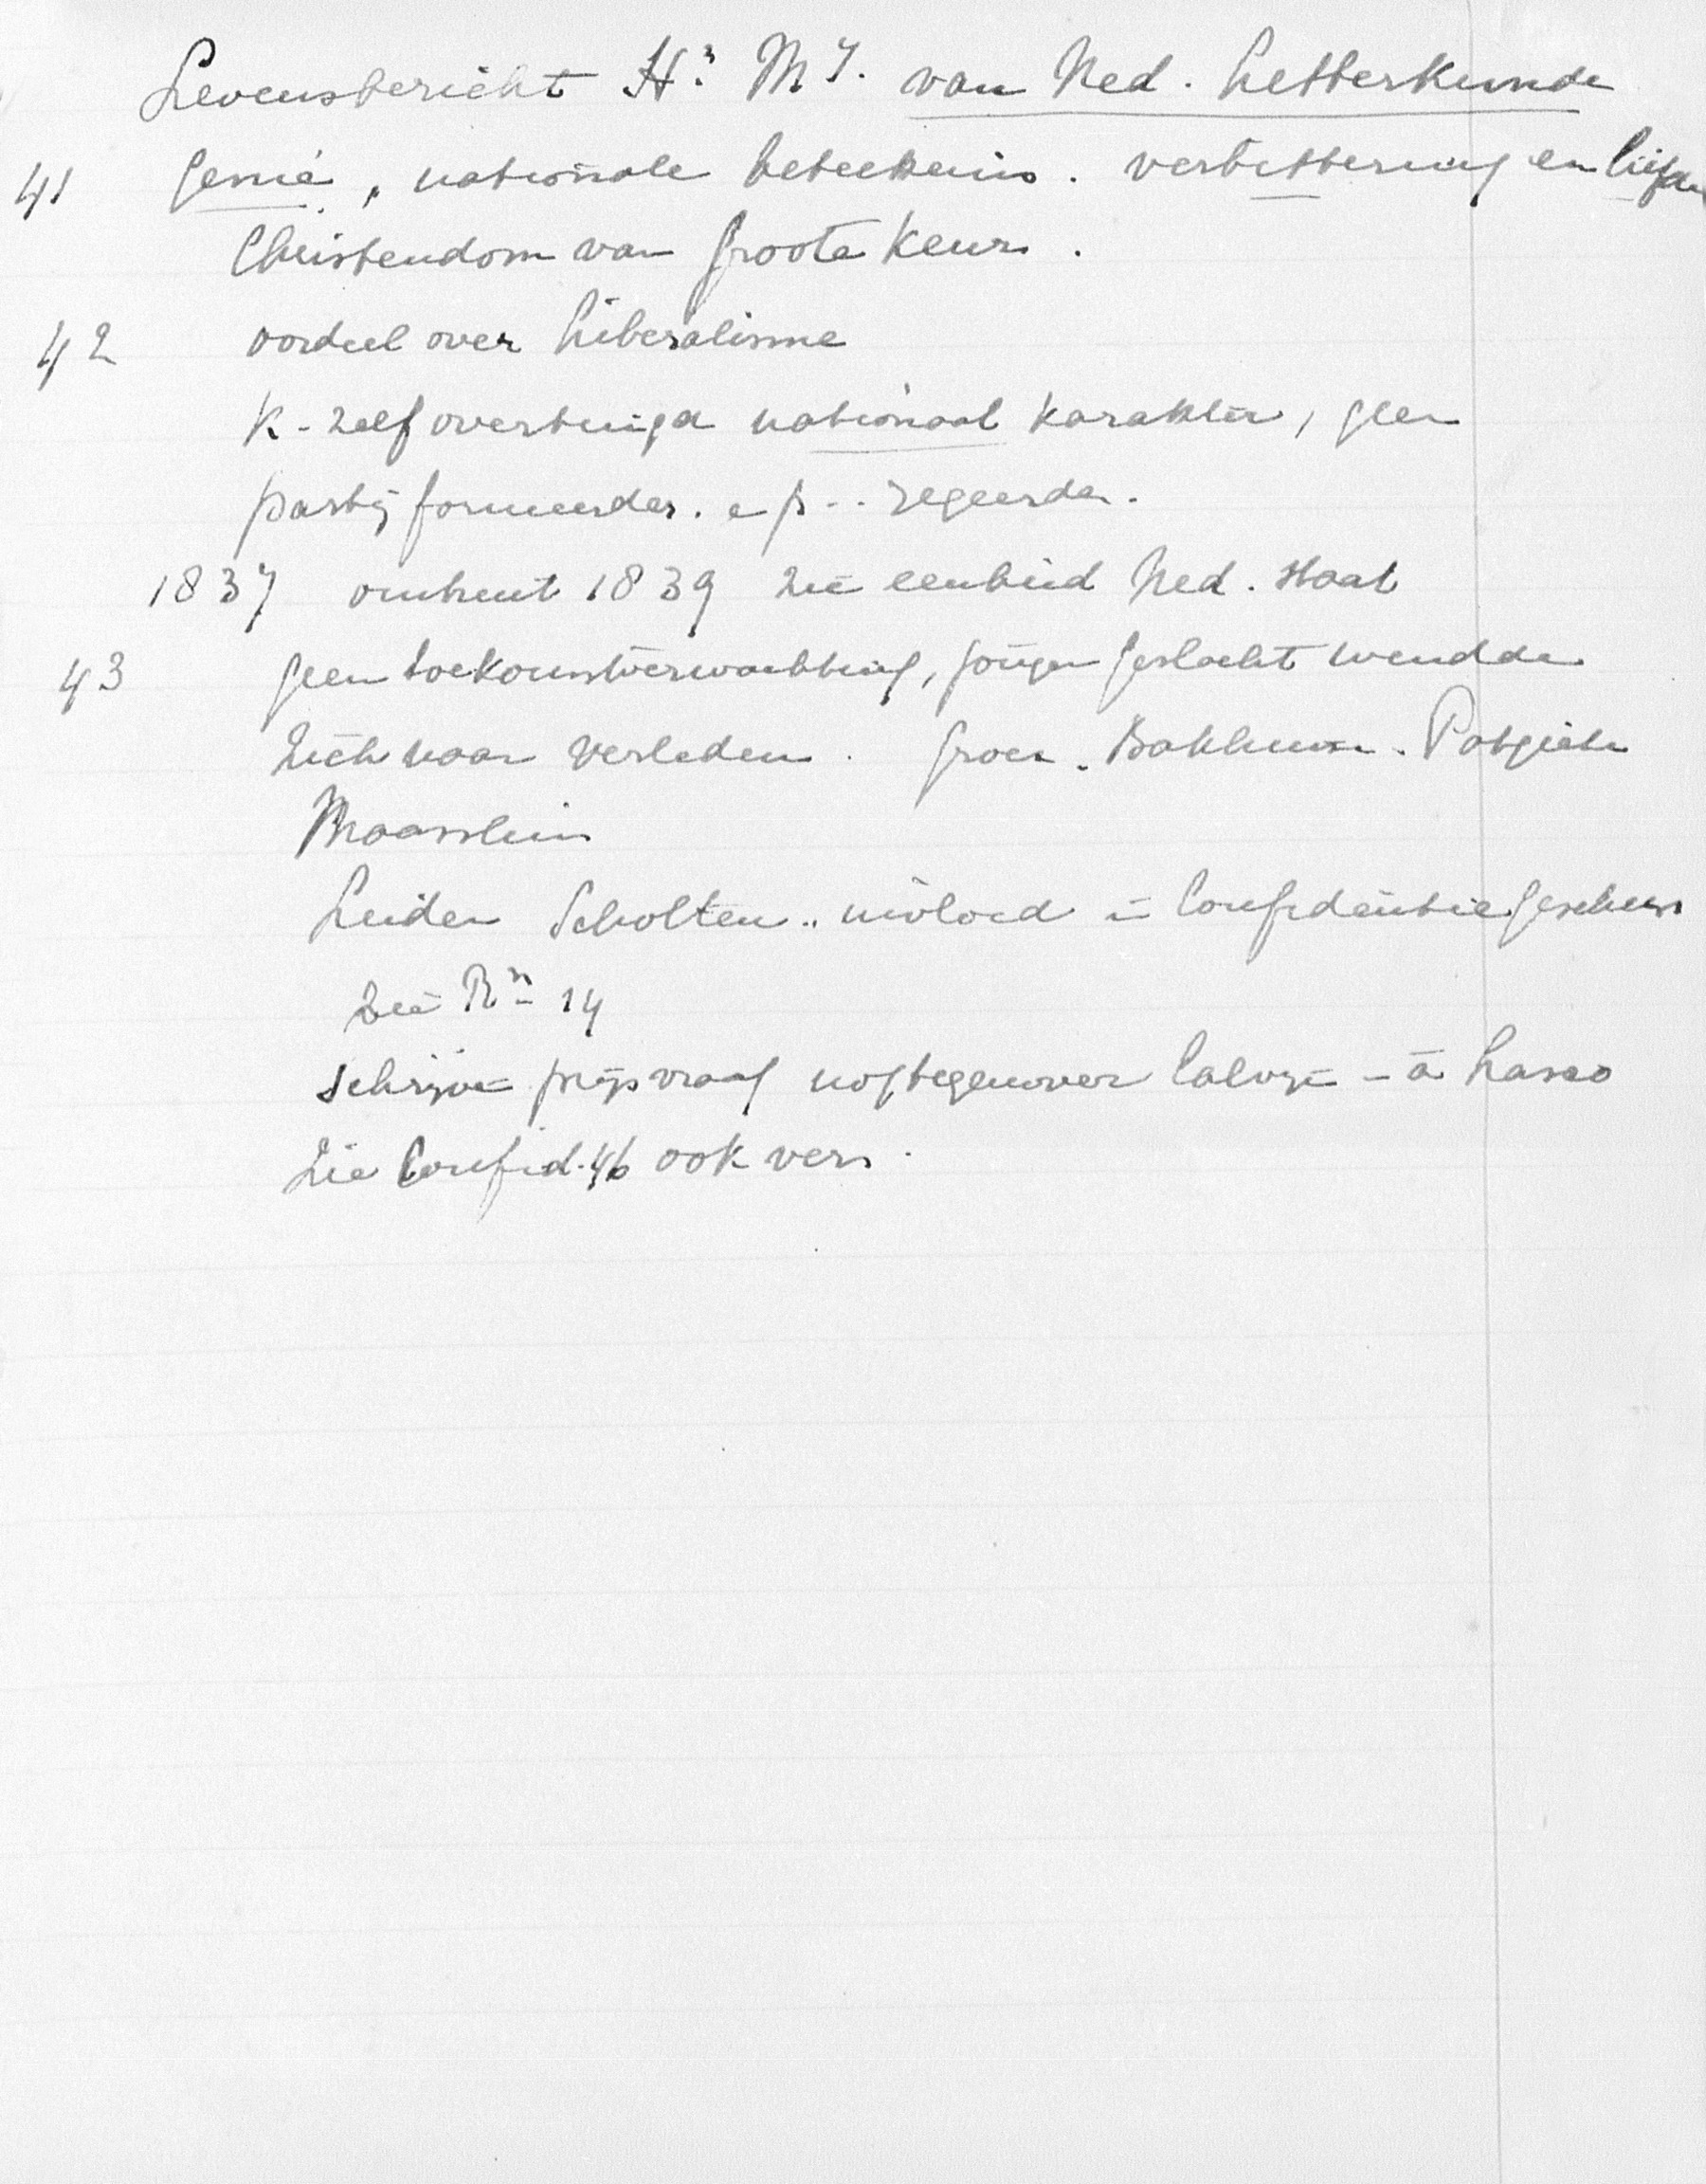 Levensbericht Hn. Mij. van Ned. Letterkunde
41 genie, nationale beteekenis. verbittering en liefde
Christendom van groote keur.
42 oordeel over Liberalisme
K - zelf overtuigd nationaal karakter, geen
partijformeerder. e p -- regeerder.
1837 omtrent 1839 zie eenheid Ned. Staat
43 geen toekomstverwachting, jonger geslacht wendde
zich naar verleden. Groen. Bakhuizen. Potgieter
Leiden Scholten .. invloed in Confidentie geschreven
zie 14
schrijven prijsvraag nog tegenover Calvijn - à Lasco
Zie Confid. 46 ook vers.